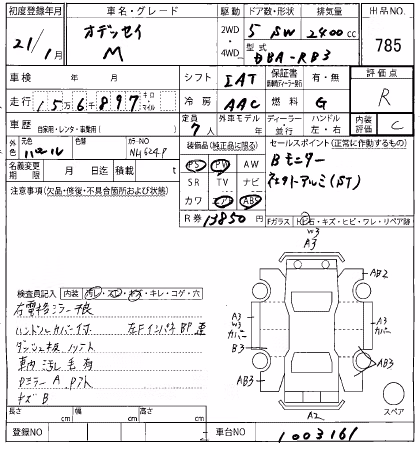 初度登録年月 車名・グレード 駆動 ドア数・形状 排気量 出品NO.
21/1月 オデッセイ M 2WD 4WD 5 SW 2400cc 785
型式 DBA-RB3
車検 年 月 シフト IAT 保証書 有・無 評価点 R
走行 15万6千897キロ・マイル 冷房 AAC 燃料 G
車歴 自家用・レンタ・事業用( ) 定員 7人 外車モデル 年 ディーラー 並行 ハンドル 左・右 内装評価 C
外色 元色 パール 色替 カラーNO NH624P
装備品(純正品に限る) セールスポイント(正常に作動するもの)
名義変更期限 月 日迄 積載 t
PS PW AW Bモニター
SR TV ナビ 社外アルミ(ST)
注意事項(欠品・修復・不具合箇所および状態)
カワ エアB ABS
R券 13850
Fガラス 石・キズ・ヒビ・ワレ・リペア跡
検査員記入 内装 汚レ・スレ・キズ・キレ・コゲ・穴
右電格ミラー
ハンドルカバー付 左FインパネBP
ダッシュ板
車内汚し毛有
キズB
W3
A3
AB2
A3
W3
カバー
B3
A3
カバー
AB3
AB3
A2
スペア
長さ cm 幅 cm 高さ cm
登録NO 車台NO 1003161